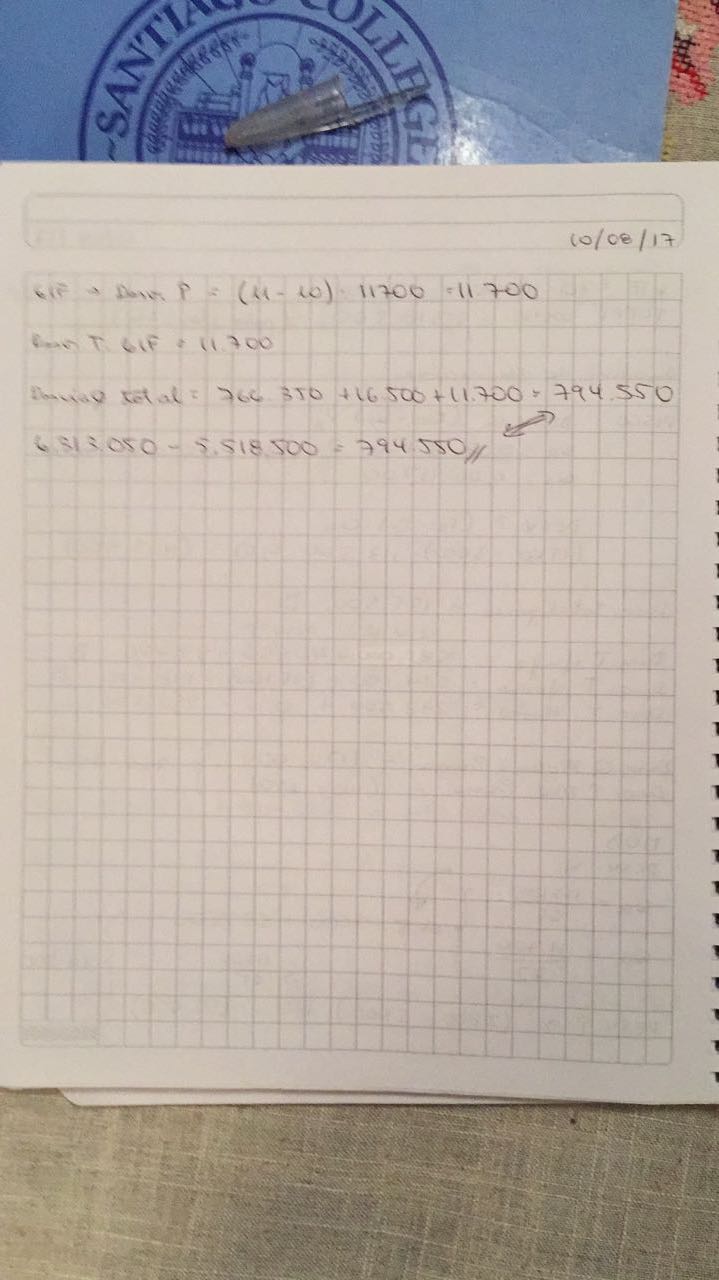 SANTIAGO COLLEGE
10/08/17
GIF → Desv P = (11 - 10) · 11700 = 11.700
Desv T. GIF = 11.700
total = 766.350 + 16.500 + 11.700 = 794.550
6.313.050 - 5.518.500 = 794.550 //